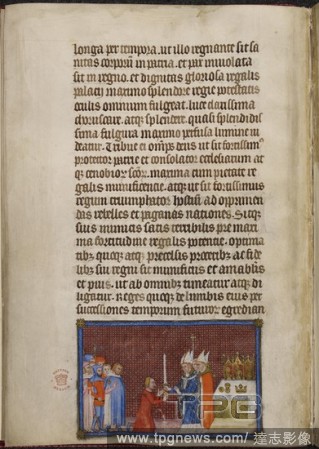 longa per tempora. ut illo regnante sit sa
nitas corporum in patria. et pax inuiolata
sit in regno. et dignitas gloriosa regalis
palacij maximo splendore regie potestatis
oculis omnium fulgeat. luce clarissima
choruscare. atq; splendere. quasi splendidis
sima fulgura maximo perfusa lumine ui
deatur. Tribue ei omps deus ut sit fortissimus
protector patrie et consolator ecclesiarum at
q; cenobiorum scorum. maxima cum pietate re
galis munificencie. atq; ut sit fortissimus
regum triumphator hostium ad opprimen
das rebelles et paganas nationes. Sitq;
suis inimicis satis terribilis pre maxi
ma fortitudine regalis potencie. optima
tibz quoq; atq; precelsis proceribz ac fide
libz sui regni sit munificus et amabilis
et pius. ut ab omnibz timeatur atq; di
ligatur. Reges quoq; de lumbis eius per
successiones temporum futurorum egredian
TPG
www.tpgnews.com/ 達志影像